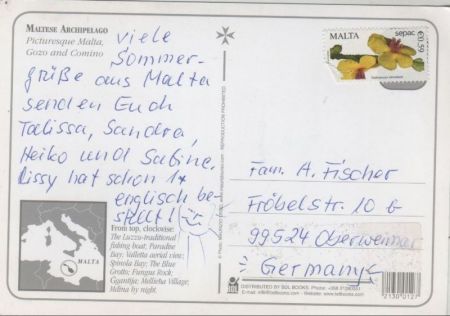 MALTESE ARCHIPELAGO
Picturesque Malta,
Gozo and Comino
viele
Sommer-
grüße aus Malta
senden Euch
Talissa, Sandra,
Heiko und Sabine.
Lissy hat schon 1x
englisch be-
stellt!
From top, clockwise:
The Luzzu-traditional
fishing boat; Paradise
Bay; Valletta aerial view;
Spinola Bay; The Blue
Grotto; Fungus Rock;
Ggantija; Mellieha Village;
Mdina by night.
MALTA
MALTA
sepac
€0.59
Fam. A. Fischer
Fröbelstr. 10 b
99524 Oberweimar
Germany
DISTRIBUTED BY BDL BOOKS: